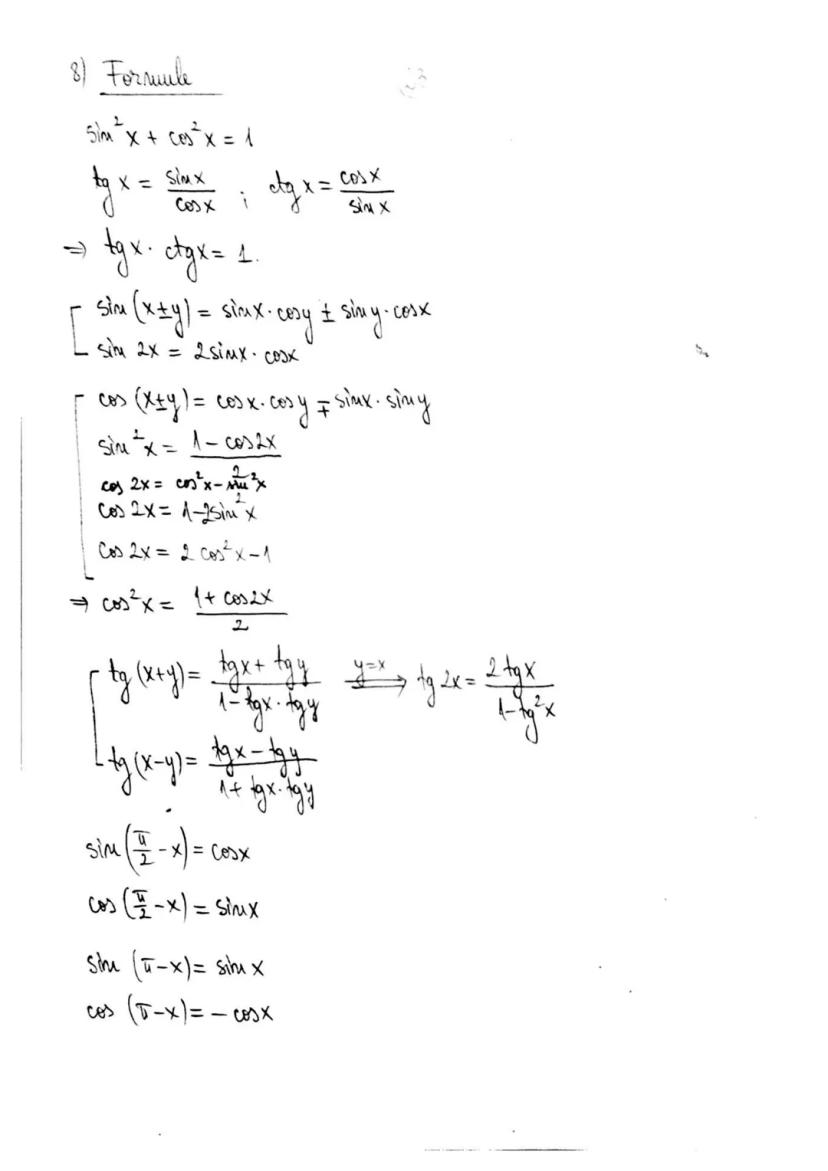 8) Formule
sin²x + cos²x = 1
tg x = sinx/cosx ; ctg x = cosx/sinx
⇒ tgx · ctgx = 1.
sin(x±y) = sinx·cosy ± siny·cosx
sin 2x = 2sinx·cosx
cos(x±y) = cosx·cosy ∓ sinx·siny
sin²x = (1 - cos2x)/2
cos 2x = cos²x - sin²x
cos 2x = 1-2sin²x
cos 2x = 2cos²x-1
⇒ cos²x = (1 + cos2x)/2
tg(x+y) = (tgx + tgy)/(1 - tgx·tgy) =y=x=> tg 2x = 2tgx/(1-tg²x)
tg(x-y) = (tgx - tgy)/(1 + tgx·tgy)
sin(π/2 - x) = cosx
cos(π/2 - x) = sinx
sin(π-x) = sinx
cos(π-x) = -cosx